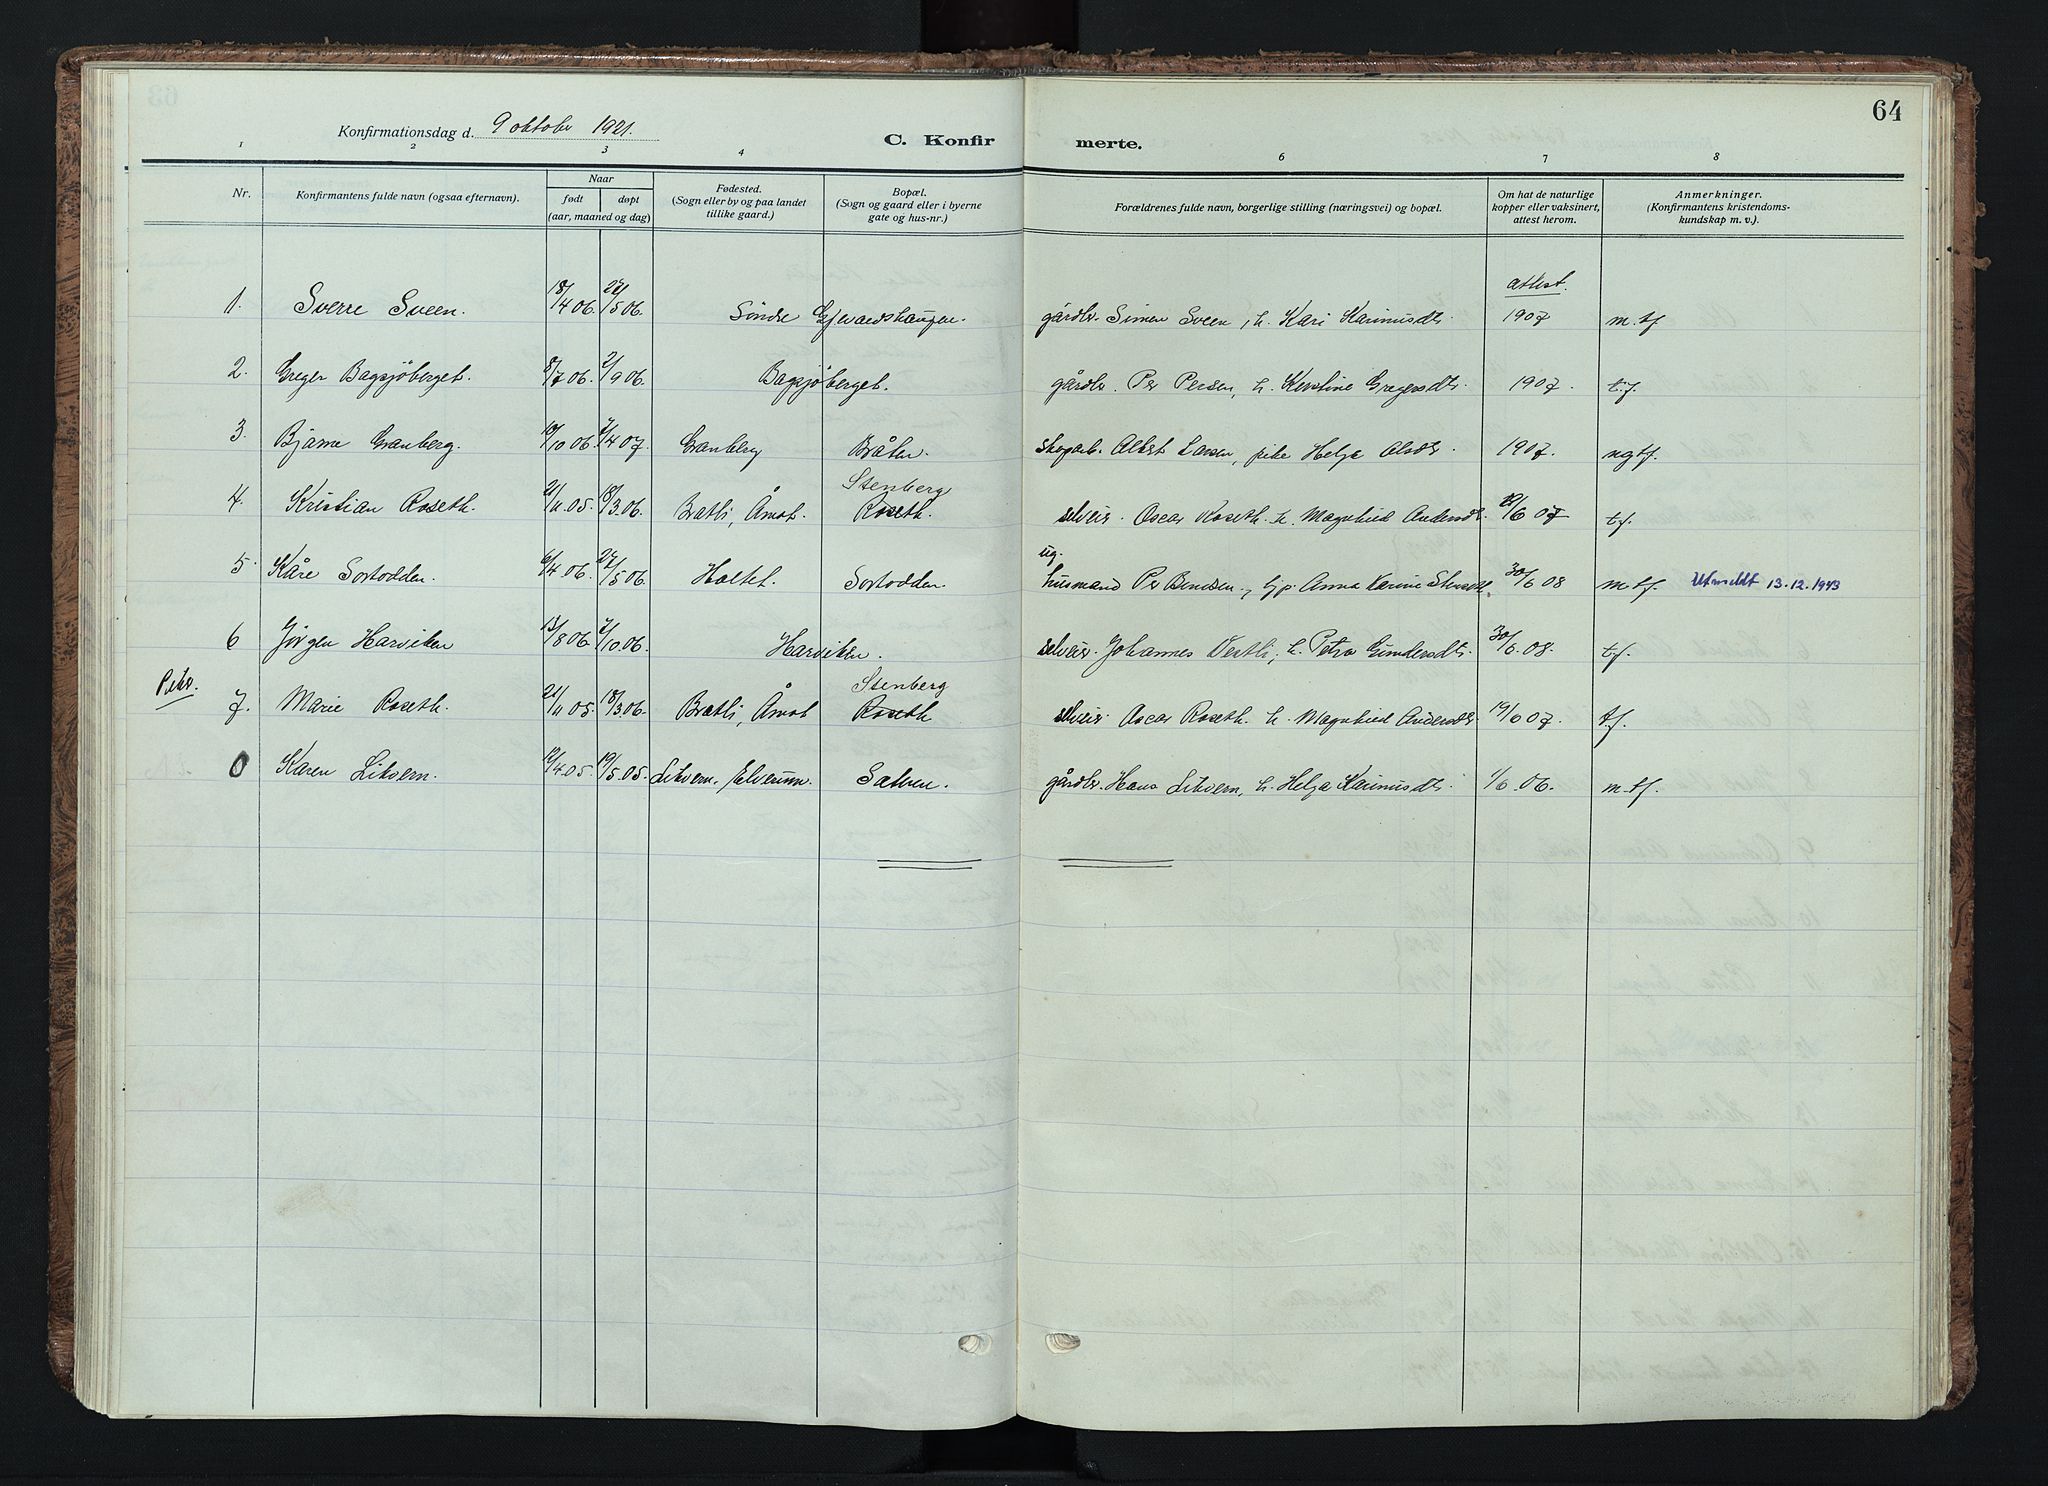 64
Konfirmationsdag d. 9 oktober 1921.
C. Konfirmerte.
1 2 3 4 6 7 8
Nr. Konfirmantens fulde navn (ogsaa efternavn). Naar født døpt (aar, maaned og dag) Fødested. (Sogn eller by og paa landet tillike gaard.) Bopæl. (Sogn og gaard eller i byerne gate og hus-nr.) Forældrenes fulde navn, borgerlige stilling (næringsvei) og bopæl. Om hat de naturlige kopper eller vaksinert, attest herom. Anmerkninger. (Konfirmantens kristendomskundskap m. v.).
attest.
1. Sverre Sveen. 18/4 06. 27/5 06. Söndre Gjevardshaugen. gårdbr. Simen Sveen, h. Kari Karinusdtr. 1907 m.tf.
2. Greger Bagsjöberget. 8/7 06. 2/9 06. Bagsjöberget. gårdbr. Per Persen, h. Kerstine Gregersdtr. 1907. t.f.
3. Bjarne Granberg. 10/10 06. 7/4 07. Granberg Bråten. skogarb. Albert Larsen, pike Helga Olsdtr. 1907. ngtf.
Stenberg
4. Kristian Roseth. 21/11 05. 18/3 06. Brætli, Åmot. Roseth. selveier. Oscar Roseth. h. Magnhild Andersdtr. 19/6 07 t.f.
ug.
5. Kåre Sortodden. 6/4 06. 27/5 06. Holtet. Sortodden. husmand Per Bendsen., Gjp. Anna Karine 30/6 08 m.tf. Utmeldt 13.12.1943
6 Jörgen Harviken 13/8 06. 7/10 06. Harviken. selveier. Johannes Vestli, h. Petra Gundersdtr. 30/6. 08. t.f.
Stenberg
Piker. 7. Marie Roseth. 21/11 05. 18/3 06. Brætli, Åmot Roseth selveier. Oscar Roseth. h. Magnhild Andersdtr. 19/6 07. t.f.
0 Karen Litvern. 12/4 05. 19/5 05. Litvern, Elverum. Sætren. gårdbr. Hans Litvern, h. Helga Karinusdtr. 1/6. 06. m.tf.